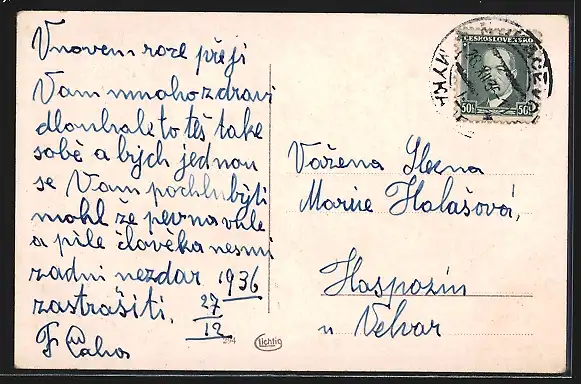 V novem roce přeji
Vam mnoho zdravi
dlouhale to též take
sobě a bych jednou
se Vam pochlubyti
mohl že pevna vule
a pile člověka nesmi
zadni nezdar 1936
zastrašiti. 27
12
F Laho
Vážena Slecna
Marie Halašová,
Haspozin
u Velvar
ČESKOSLOVENSKO
50h 50h
Lichtig